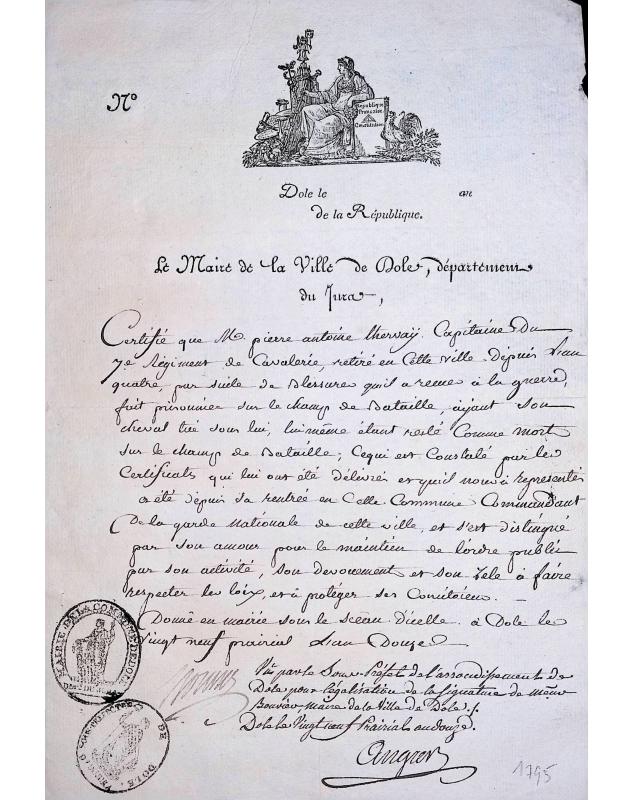 République
Française
Constitution
N°
Dole le an
de la République.
Le Maire de la Ville de Dole, département
du Jura,
Certifie que M. pierre antoine Capitaine Du
7e Régiment de Cavalerie, retiré en Cette ville Depuis L'an
quatre, par suite de Blessure qu'il a à la guerre,
fait prisonnier sur le champ de Bataille, aÿant Son
cheval tué sous lui, lui même étant resté Comme mort
sur le champ de Bataille; Ce qui est Constaté par les
Certificats qui lui ont été délivrés et qu'il nous à représentés
a été depuis sa rentrée en Cette Commune Commandant
De la garde Nationale de cette ville, et s'est distingué
par son amour pour le maintien de l'ordre public
par son activité, son devouement et son Zele à faire
respecter les loix, et à protéger ses Concitoiens.
Donné en mairie sous le sceau d'icelle à Dole le
Vingt neuf prairial L'an Douze
Vu par le Sous-Préfet de l'arrondissement de
Dole pour légalisation de la signature de
Bouvier Maire de la Ville de Dole.
Dole le Vingt neuf Prairial an douze.
MAIRIE DE LA COMMUNE DE DOLE
DE DOLE
1795